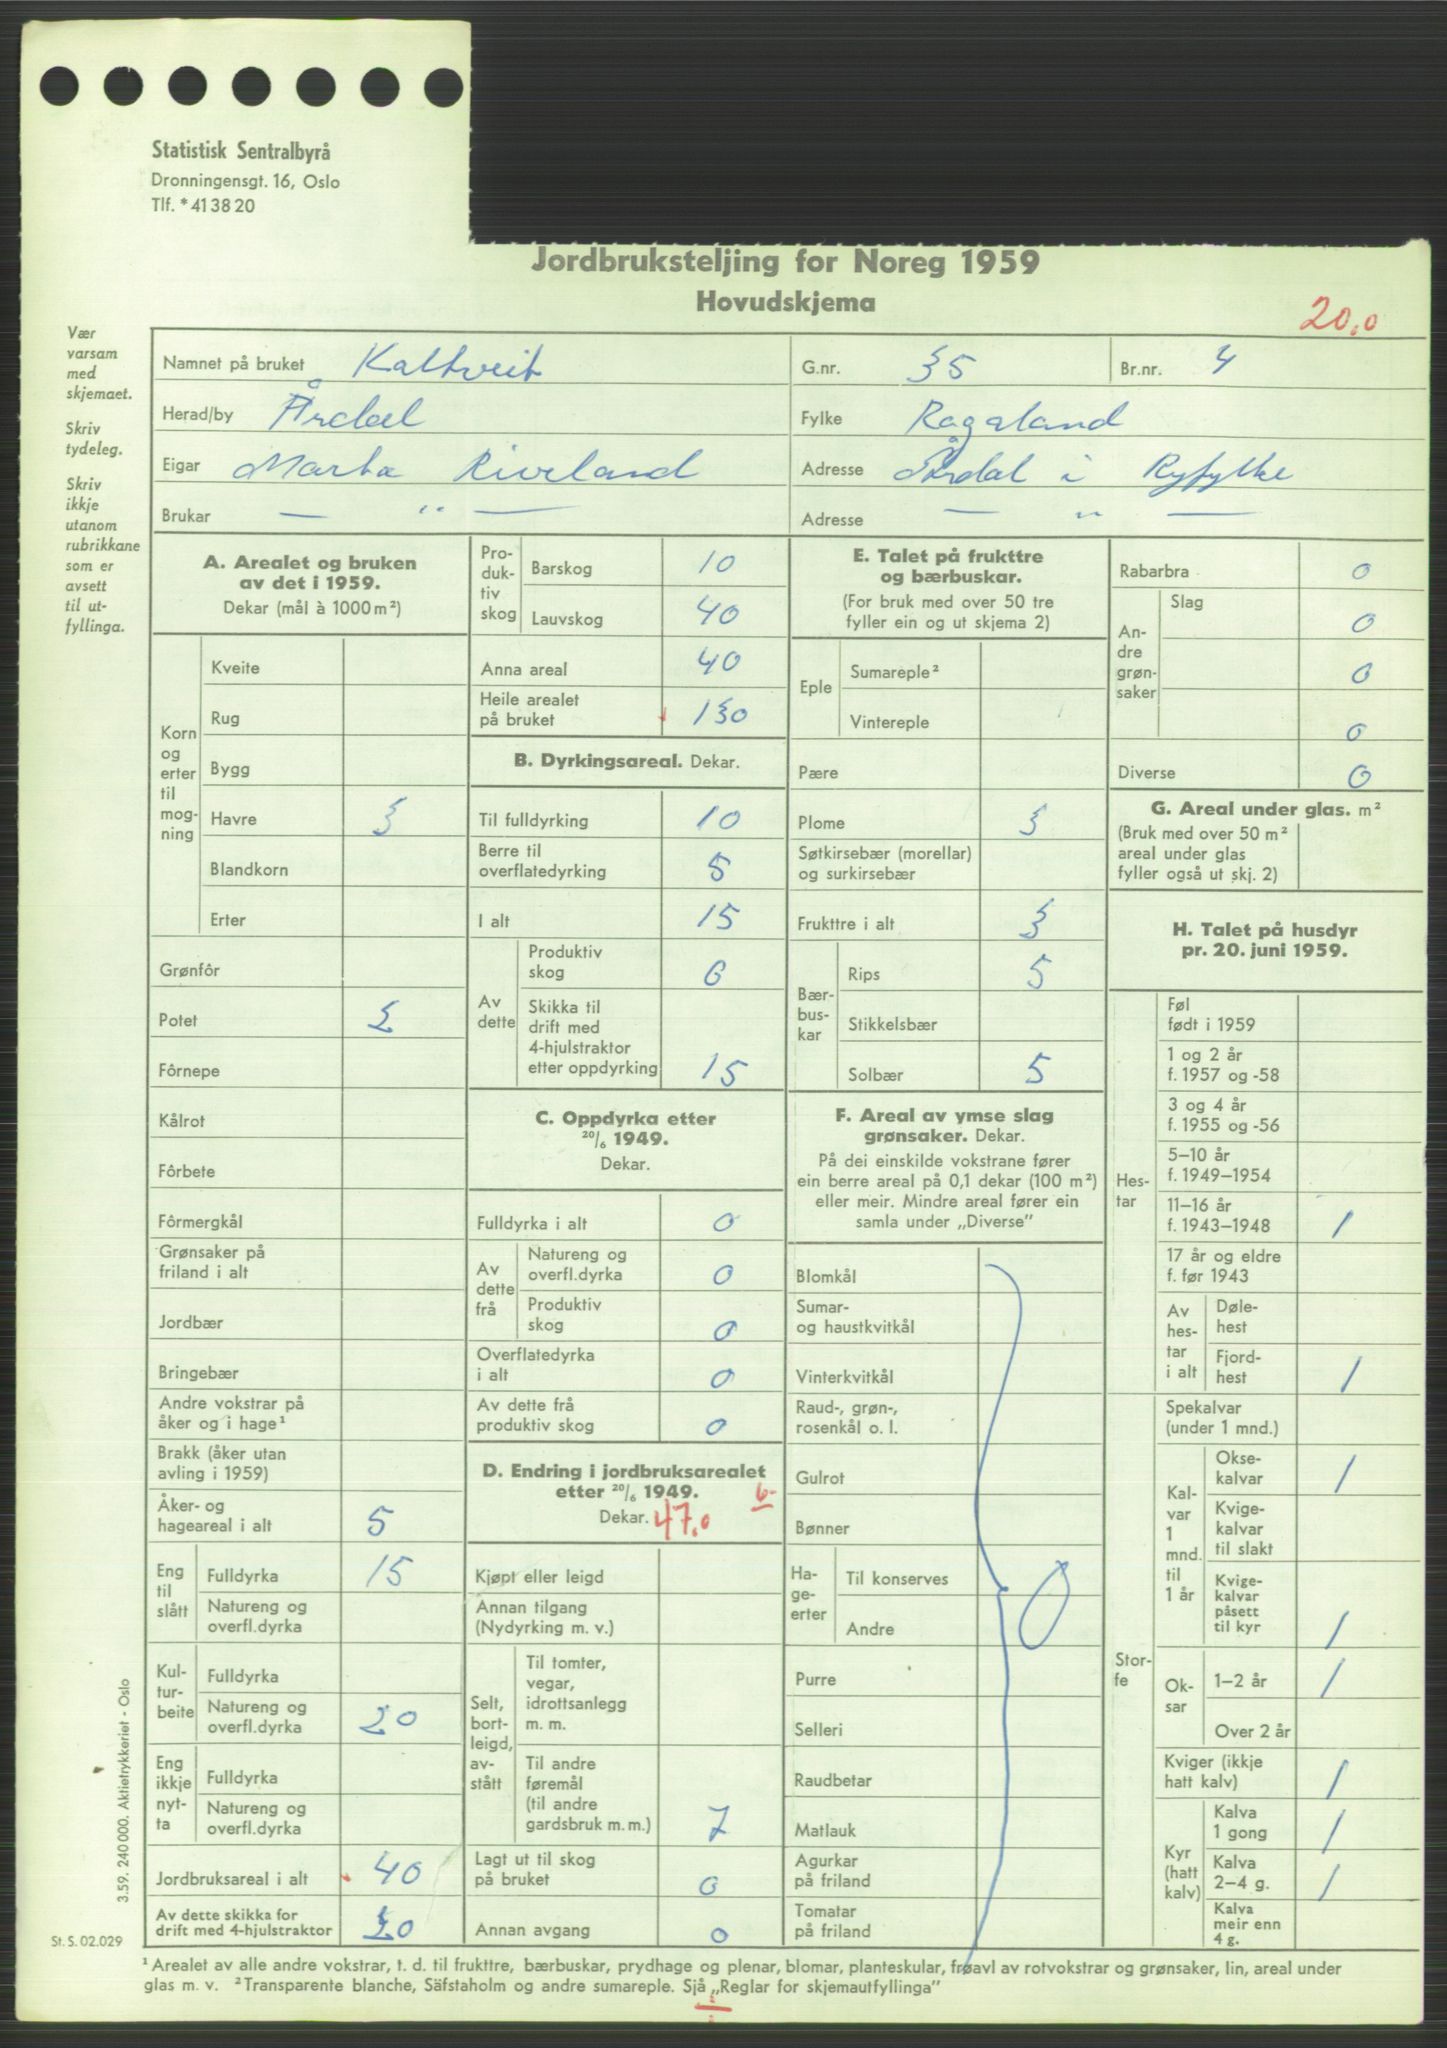 Statistisk Sentralbyrå
Dronningensgt. 16, Oslo
Tlf. *41 38 20
Jordbruksteljing for Noreg 1959
Hovudskjema
20,0
Vær
varsam
med
skjemaet.
Skriv
tydeleg.
Skriv
ikkje
utanom
rubrikkane
som er
avsett
til ut-
fyllinga.
Namnet på bruket Kaltveit G.nr. 35 Br.nr. 4
Herad/by Årdal Fylke Rogaland
Eigar Marta Riveland Adresse Årdal i Ryfylke
Brukar — " — Adresse — " —
A. Arealet og bruken
av det i 1959.
Dekar (mål à 1000 m²)
Korn
og
erter
til
mog-
ning
Kveite
Rug
Bygg
Havre 3
Blandkorn
Erter
Grønfôr
Potet 2
Fôrnepe
Kålrot
Fôrbete
Fôrmergkål
Grønsaker på
friland i alt
Jordbær
Bringebær
Andre vokstrar på
åker og i hage¹
Brakk (åker utan
avling i 1959)
Åker- og
hageareal i alt 5
Eng
til
slått
Fulldyrka 15
Natureng og
overfl.dyrka
Kul-
tur-
beite
Fulldyrka
Natureng og
overfl.dyrka 20
Eng
ikkje
nyt-
ta
Fulldyrka
Natureng og
overfl.dyrka
Jordbruksareal i alt 40
Av dette skikka for
drift med 4-hjulstraktor 20
Pro-
duk-
tiv
skog
Barskog 10
Lauvskog 40
Anna areal 40
Heile arealet
på bruket 130
B. Dyrkingsareal. Dekar.
Til fulldyrking 10
Berre til
overflatedyrking 5
I alt 15
Av
dette
Produktiv
skog 0
Skikka til
drift med
4-hjulstraktor
etter oppdyrking 15
C. Oppdyrka etter
20/6 1949.
Dekar.
Fulldyrka i alt 0
Av
dette
frå
Natureng og
overfl.dyrka 0
Produktiv
skog 0
Overflatedyrka
i alt 0
Av dette frå
produktiv skog 0
D. Endring i jordbruksarealet
etter 20/6 1949. 6-
Dekar. 47,0
Kjøpt eller leigd
Annan tilgang
(Nydyrking m. v.)
Selt,
bort-
leigd,
av-
stått
Til tomter,
vegar,
idrottsanlegg
m. m.
Til andre
føremål
(til andre
gardsbruk m. m.) 7
Lagt ut til skog
på bruket 0
Annan avgang 0
E. Talet på frukttre
og bærbuskar.
(For bruk med over 50 tre
fyller ein og ut skjema 2)
Eple
Sumareple²
Vintereple
Pære
Plome 3
Søtkirsebær (morellar)
og surkirsebær
Frukttre i alt 3
Bær-
bus-
kar
Rips 5
Stikkelsbær
Solbær 5
F. Areal av ymse slag
grønsaker. Dekar.
På dei einskilde vokstrane fører
ein berre areal på 0,1 dekar (100 m²)
eller meir. Mindre areal fører ein
samla under „Diverse"
Blomkål
Sumar-
og haustkvitkål
Vinterkvitkål
Raud-, grøn-,
rosenkål o. l.
Gulrot
Bønner
Ha-
ge-
erter
Til konserves 0
Andre
Purre
Selleri
Raudbetar
Matlauk
Agurkar
på friland
Tomatar
på friland
Rabarbra 0
An-
dre
grøn-
saker
Slag
0
0
0
Diverse 0
G. Areal under glas. m²
(Bruk med over 50 m²
areal under glas
fyller også ut skj. 2)
H. Talet på husdyr
pr. 20. juni 1959.
Hes-
tar
Føl
født i 1959
1 og 2 år
f. 1957 og -58
3 og 4 år
f. 1955 og -56
5–10 år
f. 1949–1954
11–16 år
f. 1943–1948 1
17 år og eldre
f. før 1943
Av
hes-
tar
i alt
Døle-
hest
Fjord-
hest 1
Stor-
fe
Spekalvar
(under 1 mnd.)
Kal-
var
1
mnd.
til
1 år
Okse-
kalvar 1
Kvige-
kalvar
til slakt
Kvige-
kalvar
påsett
til kyr 1
Ok-
sar
1–2 år 1
Over 2 år
Kviger (ikkje
hatt kalv) 1
Kyr
(hatt
kalv)
Kalva
1 gong 1
Kalva
2–4 g. 1
Kalva
meir enn
4 g.
3.59. 240 000. Aktietrykkeriet - Oslo
St. S. 02.029
¹ Arealet av alle andre vokstrar, t. d. til frukttre, bærbuskar, prydhage og plenar, blomar, planteskular, frøavl av rotvokstrar og grønsaker, lin, areal under
glas m. v. ² Transparente blanche, Säfstaholm og andre sumareple. Sjå „Reglar for skjemautfyllinga"